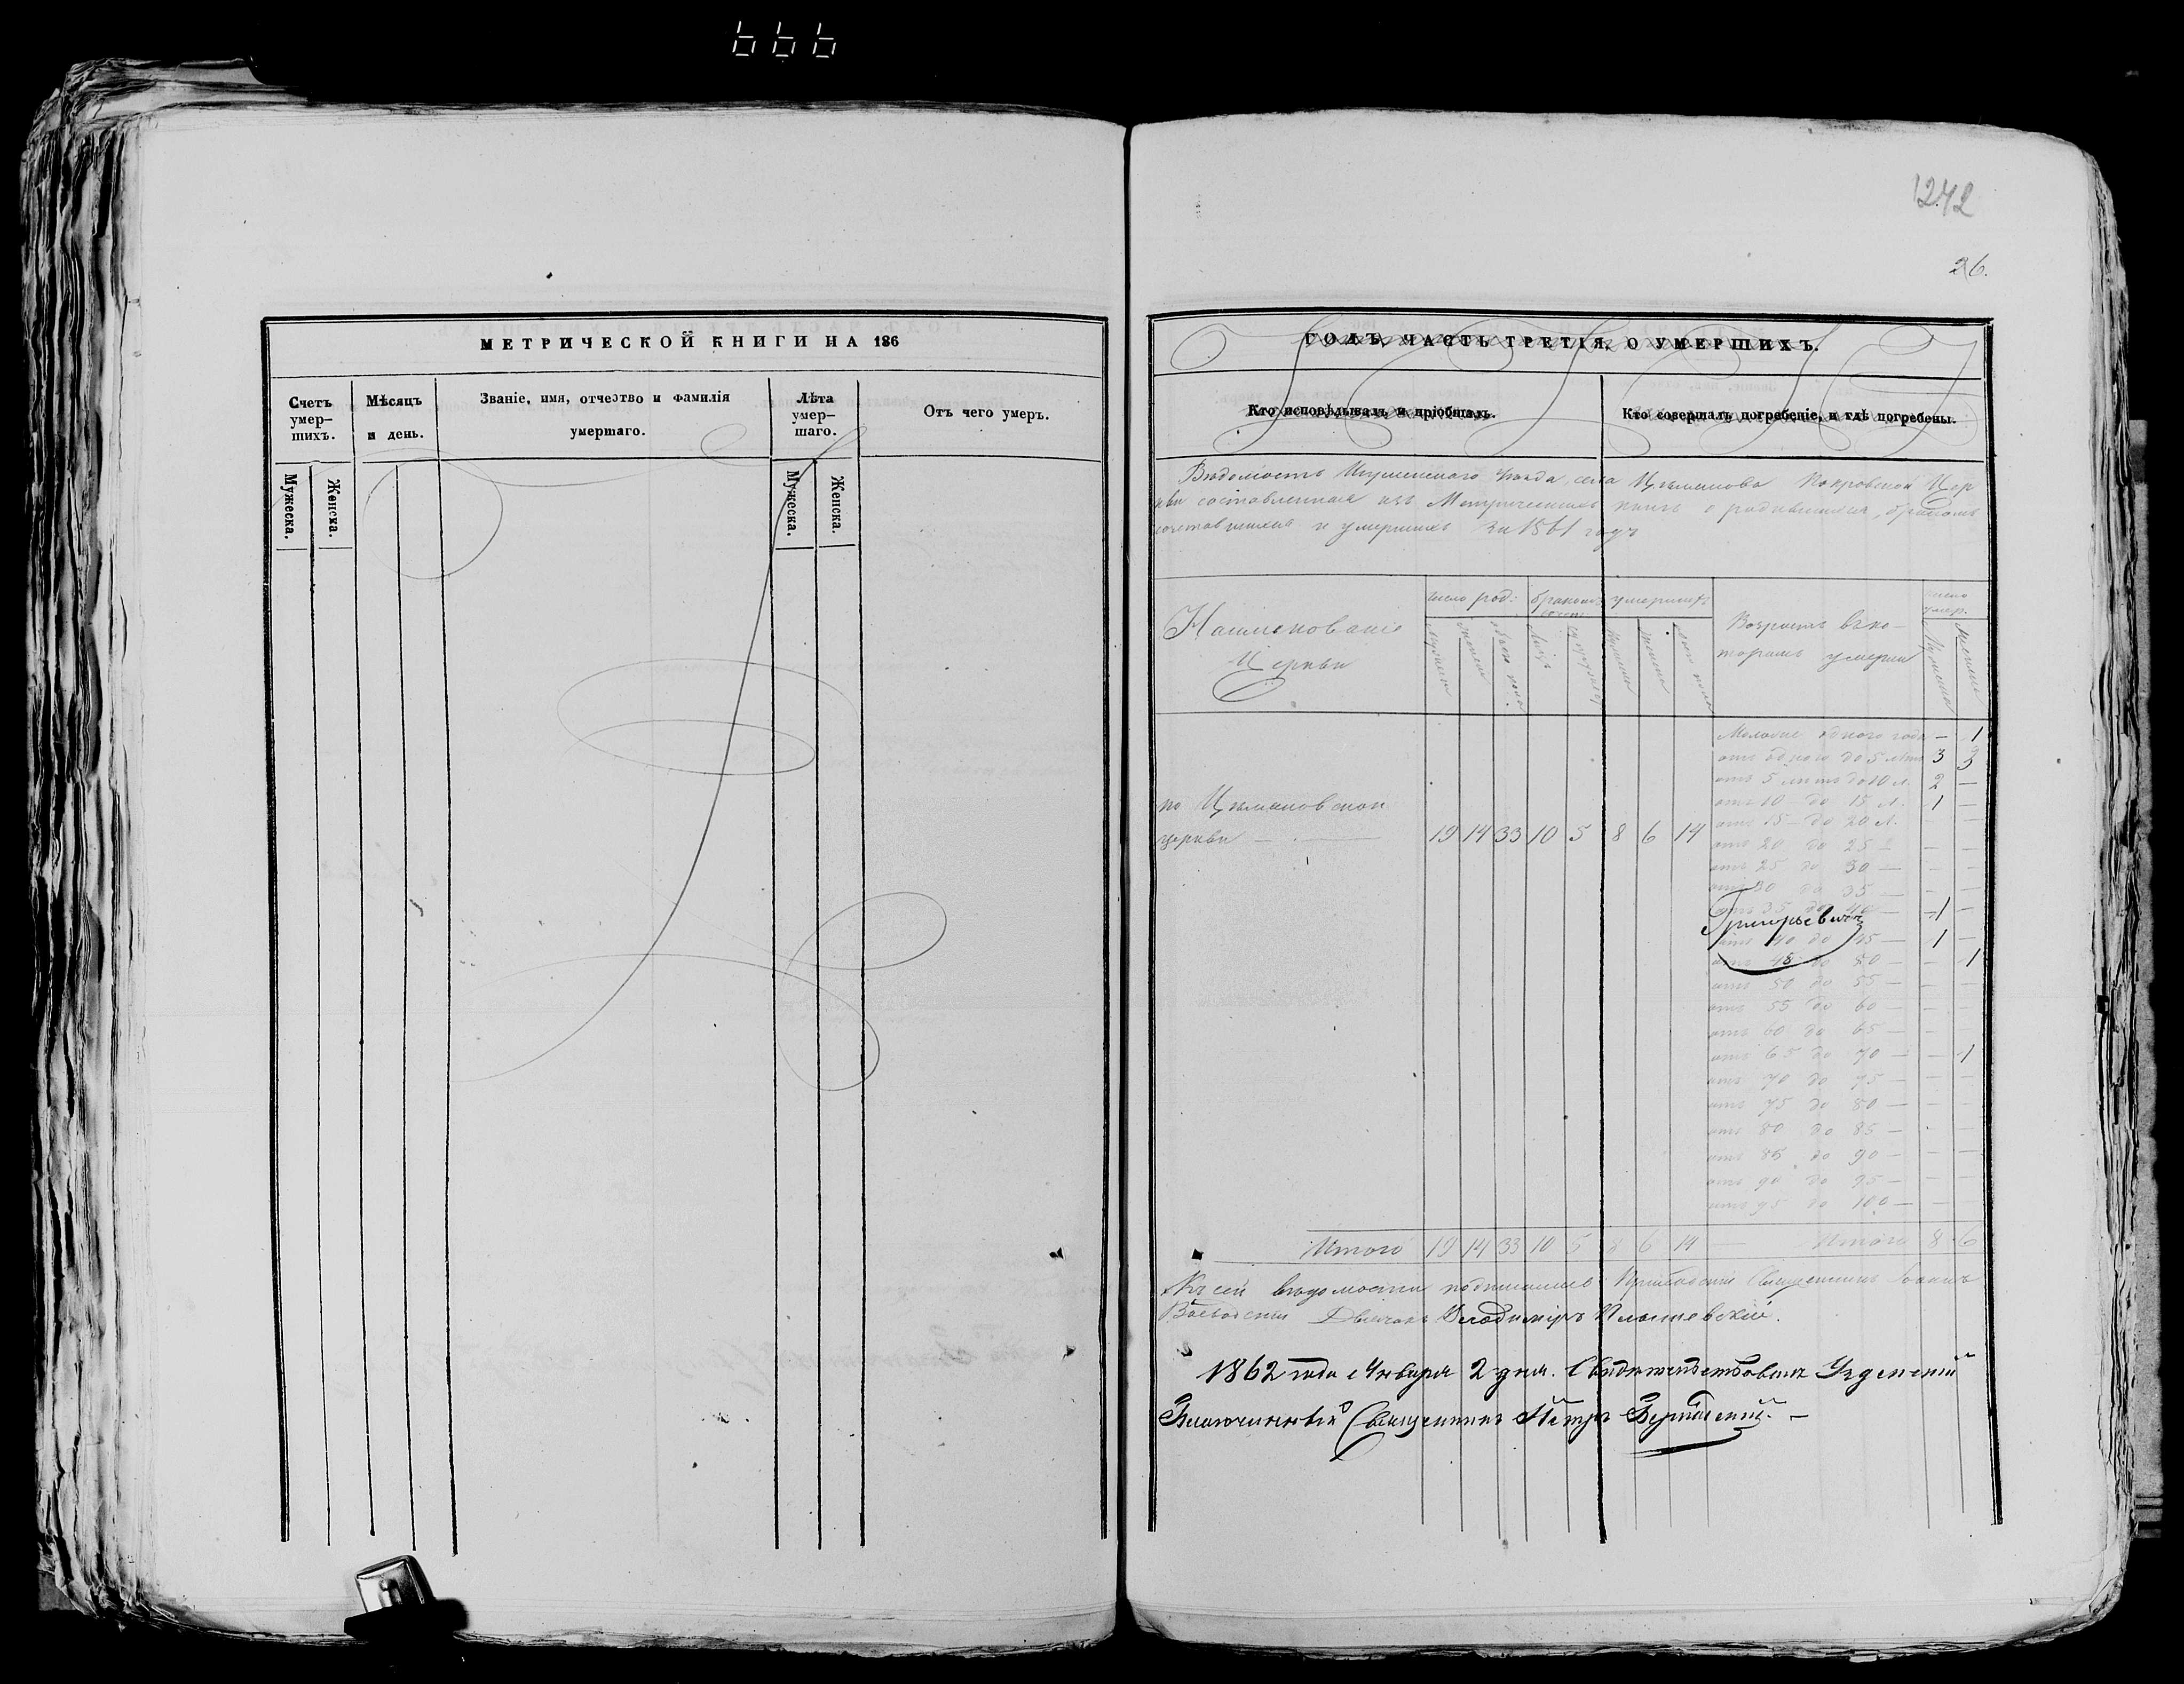 666
1242
26.
МЕТРИЧЕСКОЙ КНИГИ НА 186
Счетъ умер-
шихъ.
Мѣсяцъ
и день.
Званіе, имя, отчество и фамилія
умершаго.
Лѣта
умер-
шаго.
Отъ чего умеръ.
Мужеска.
Женска.
Мужеска.
Женска.
ГОДЪ, ЧАСТЬ ТРЕТІЯ, О УМЕРШИХЪ.
Кто исповѣдывалъ и пріобщалъ.
Кто совершалъ погребеніе, и гдѣ погребены.
Вѣдомость Игуменского Уѣзда, села Цѣмковова Покровской Цер
кви составленная изъ Метрическихъ книгъ о родившихся, бракомъ
сочетавшихся и умершихъ за 1861 годъ
Наименованіе
Церкви
число род:
бракомъ
умершихъ
Возрастъ въ ко-
торомъ умерли
число
умер.
Моложе одного года — 1
отъ одного до 5 лѣтъ 3 3
отъ 5 лѣтъ до 10 л. 2 —
отъ 10 — до 15 л. 1 —
отъ 15 — до 20 л. — —
по
церкви — 19 14 33 10 5 8 6 14
отъ 20 до 25 — — —
отъ 25 до 30 — — —
отъ 30 до 35 — — —
отъ 35 до 40 — 1 —
Григорьевичъ
отъ 40 до 45 — 1 —
отъ 45 до 50 — — 1
отъ 50 до 55 — — —
отъ 55 до 60 — — —
отъ 60 до 65 — — —
отъ 65 до 70 — — 1
отъ 70 до 75 — — —
отъ 75 до 80 — — —
отъ 80 до 85 — — —
отъ 85 до 90 — — —
отъ 90 до 95 — — —
отъ 95 до 100 — — —
Итого 19 14 33 10 5 8 6 14 — Итого 8 6
Къ сей вѣдомости подписались Приходскій Священникъ Іоаннъ
Владимиръ
1862 года Января 2 дня. Свидѣтельствовалъ Узденскій
Благочинный Священникъ Петръ